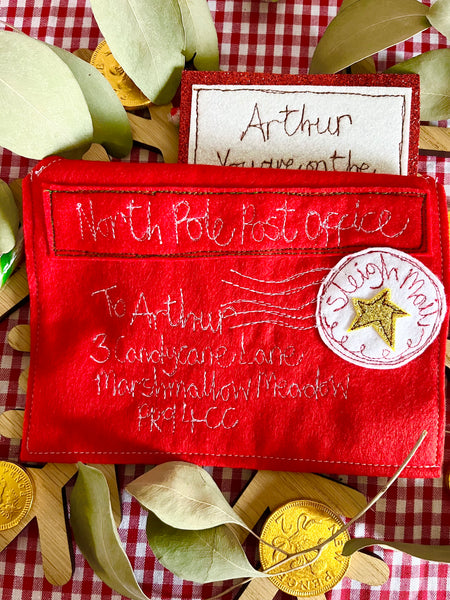 Arthur
You are on the
North Pole Post Office
Sleigh Mail
To Arthur
3 Candycane Lane
Marshmallow Meadow
PR9 4CC